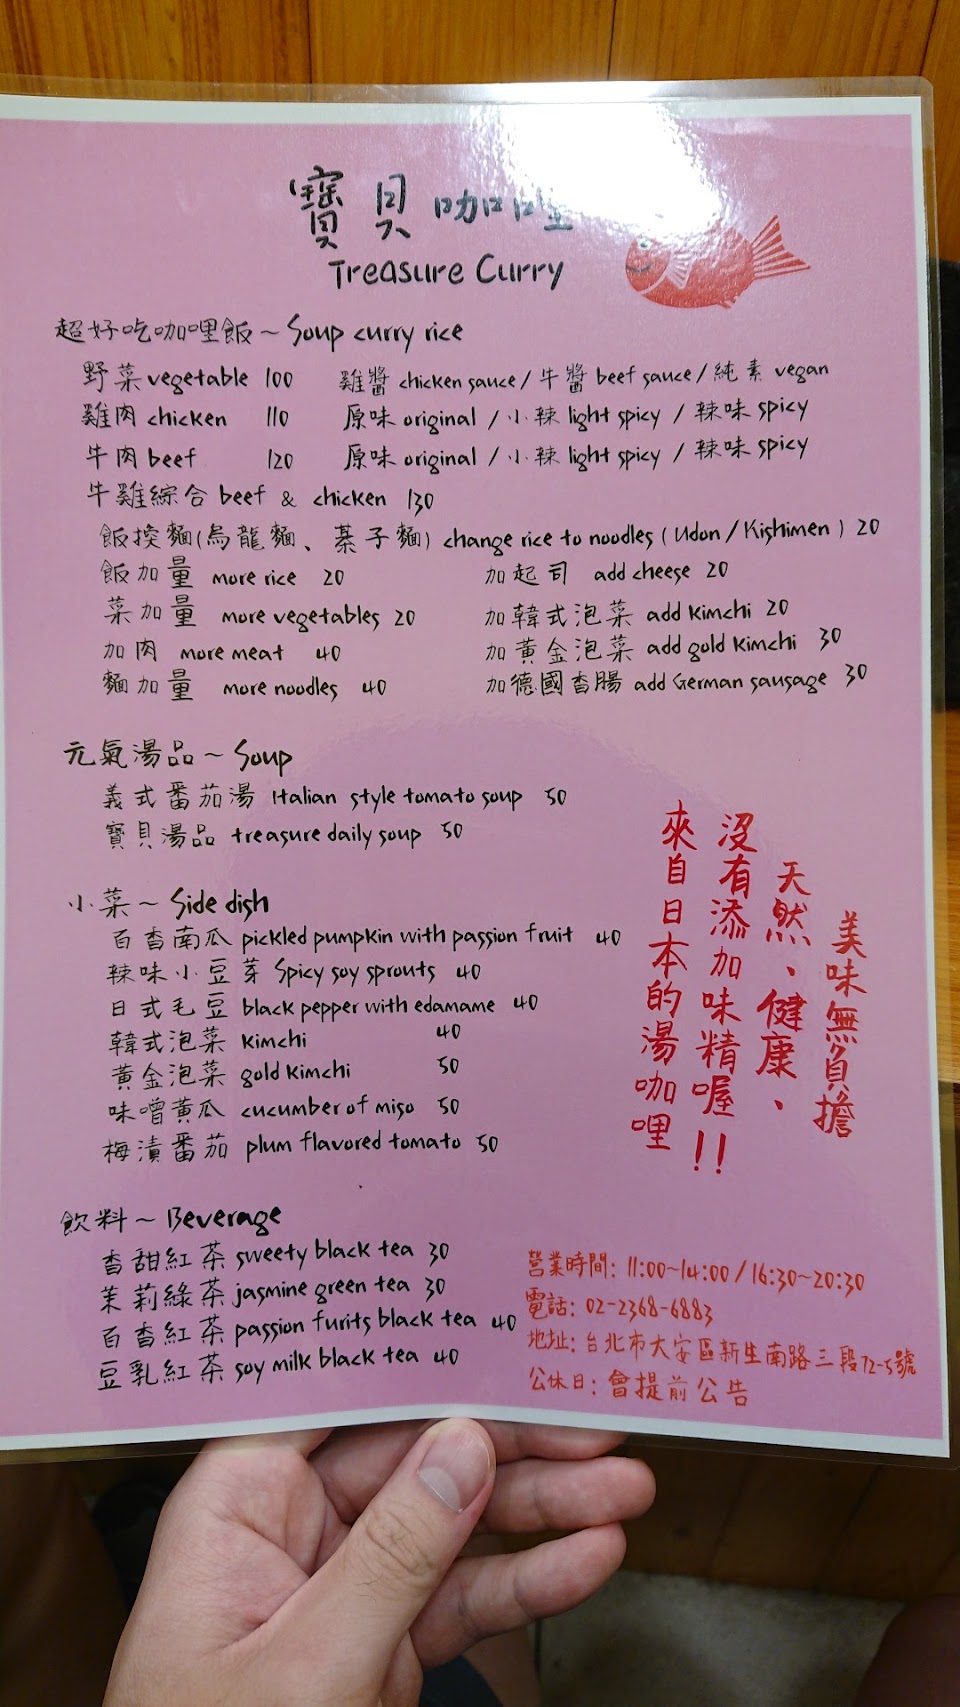 寶貝咖哩
Treasure Curry
超好吃咖哩飯~ Soup curry rice
野菜 vegetable 100 雞醬 chicken sauce / 牛醬 beef sauce / 純素 vegan
雞肉 chicken 110 原味 original / 小辣 light spicy / 辣味 spicy
牛肉 beef 120 原味 original / 小辣 light spicy / 辣味 spicy
牛雞綜合 beef & chicken 130
飯換麵(烏龍麵、棊子麵) change rice to noodles (Udon / Kishimen) 20
飯加量 more rice 20 加起司 add cheese 20
菜加量 more vegetables 20 加韓式泡菜 add kimchi 20
加肉 more meat 40 加黃金泡菜 add gold kimchi 30
麵加量 more noodles 40 加德國香腸 add German sausage 30
元氣湯品~ Soup
義式番茄湯 Italian style tomato soup 50
寶貝湯品 treasure daily soup 50
小菜~ Side dish
百香南瓜 pickled pumpkin with passion fruit 40
辣味小豆芽 Spicy soy sprouts 40
日式毛豆 black pepper with edamame 40
韓式泡菜 kimchi 40
黃金泡菜 gold kimchi 50
味噌黃瓜 cucumber of miso 50
梅漬番茄 plum flavored tomato 50
美味無負擔
天然、健康、
沒有添加味精喔!!
來自日本的湯咖哩
飲料~ Beverage
香甜紅茶 sweety black tea 30
茉莉綠茶 jasmine green tea 30
百香紅茶 passion furits black tea 40
豆乳紅茶 soy milk black tea 40
營業時間: 11:00~14:00 / 16:30~20:30
電話: 02-2368-6883
地址: 台北市大安區新生南路三段72-5號
公休日: 會提前公告